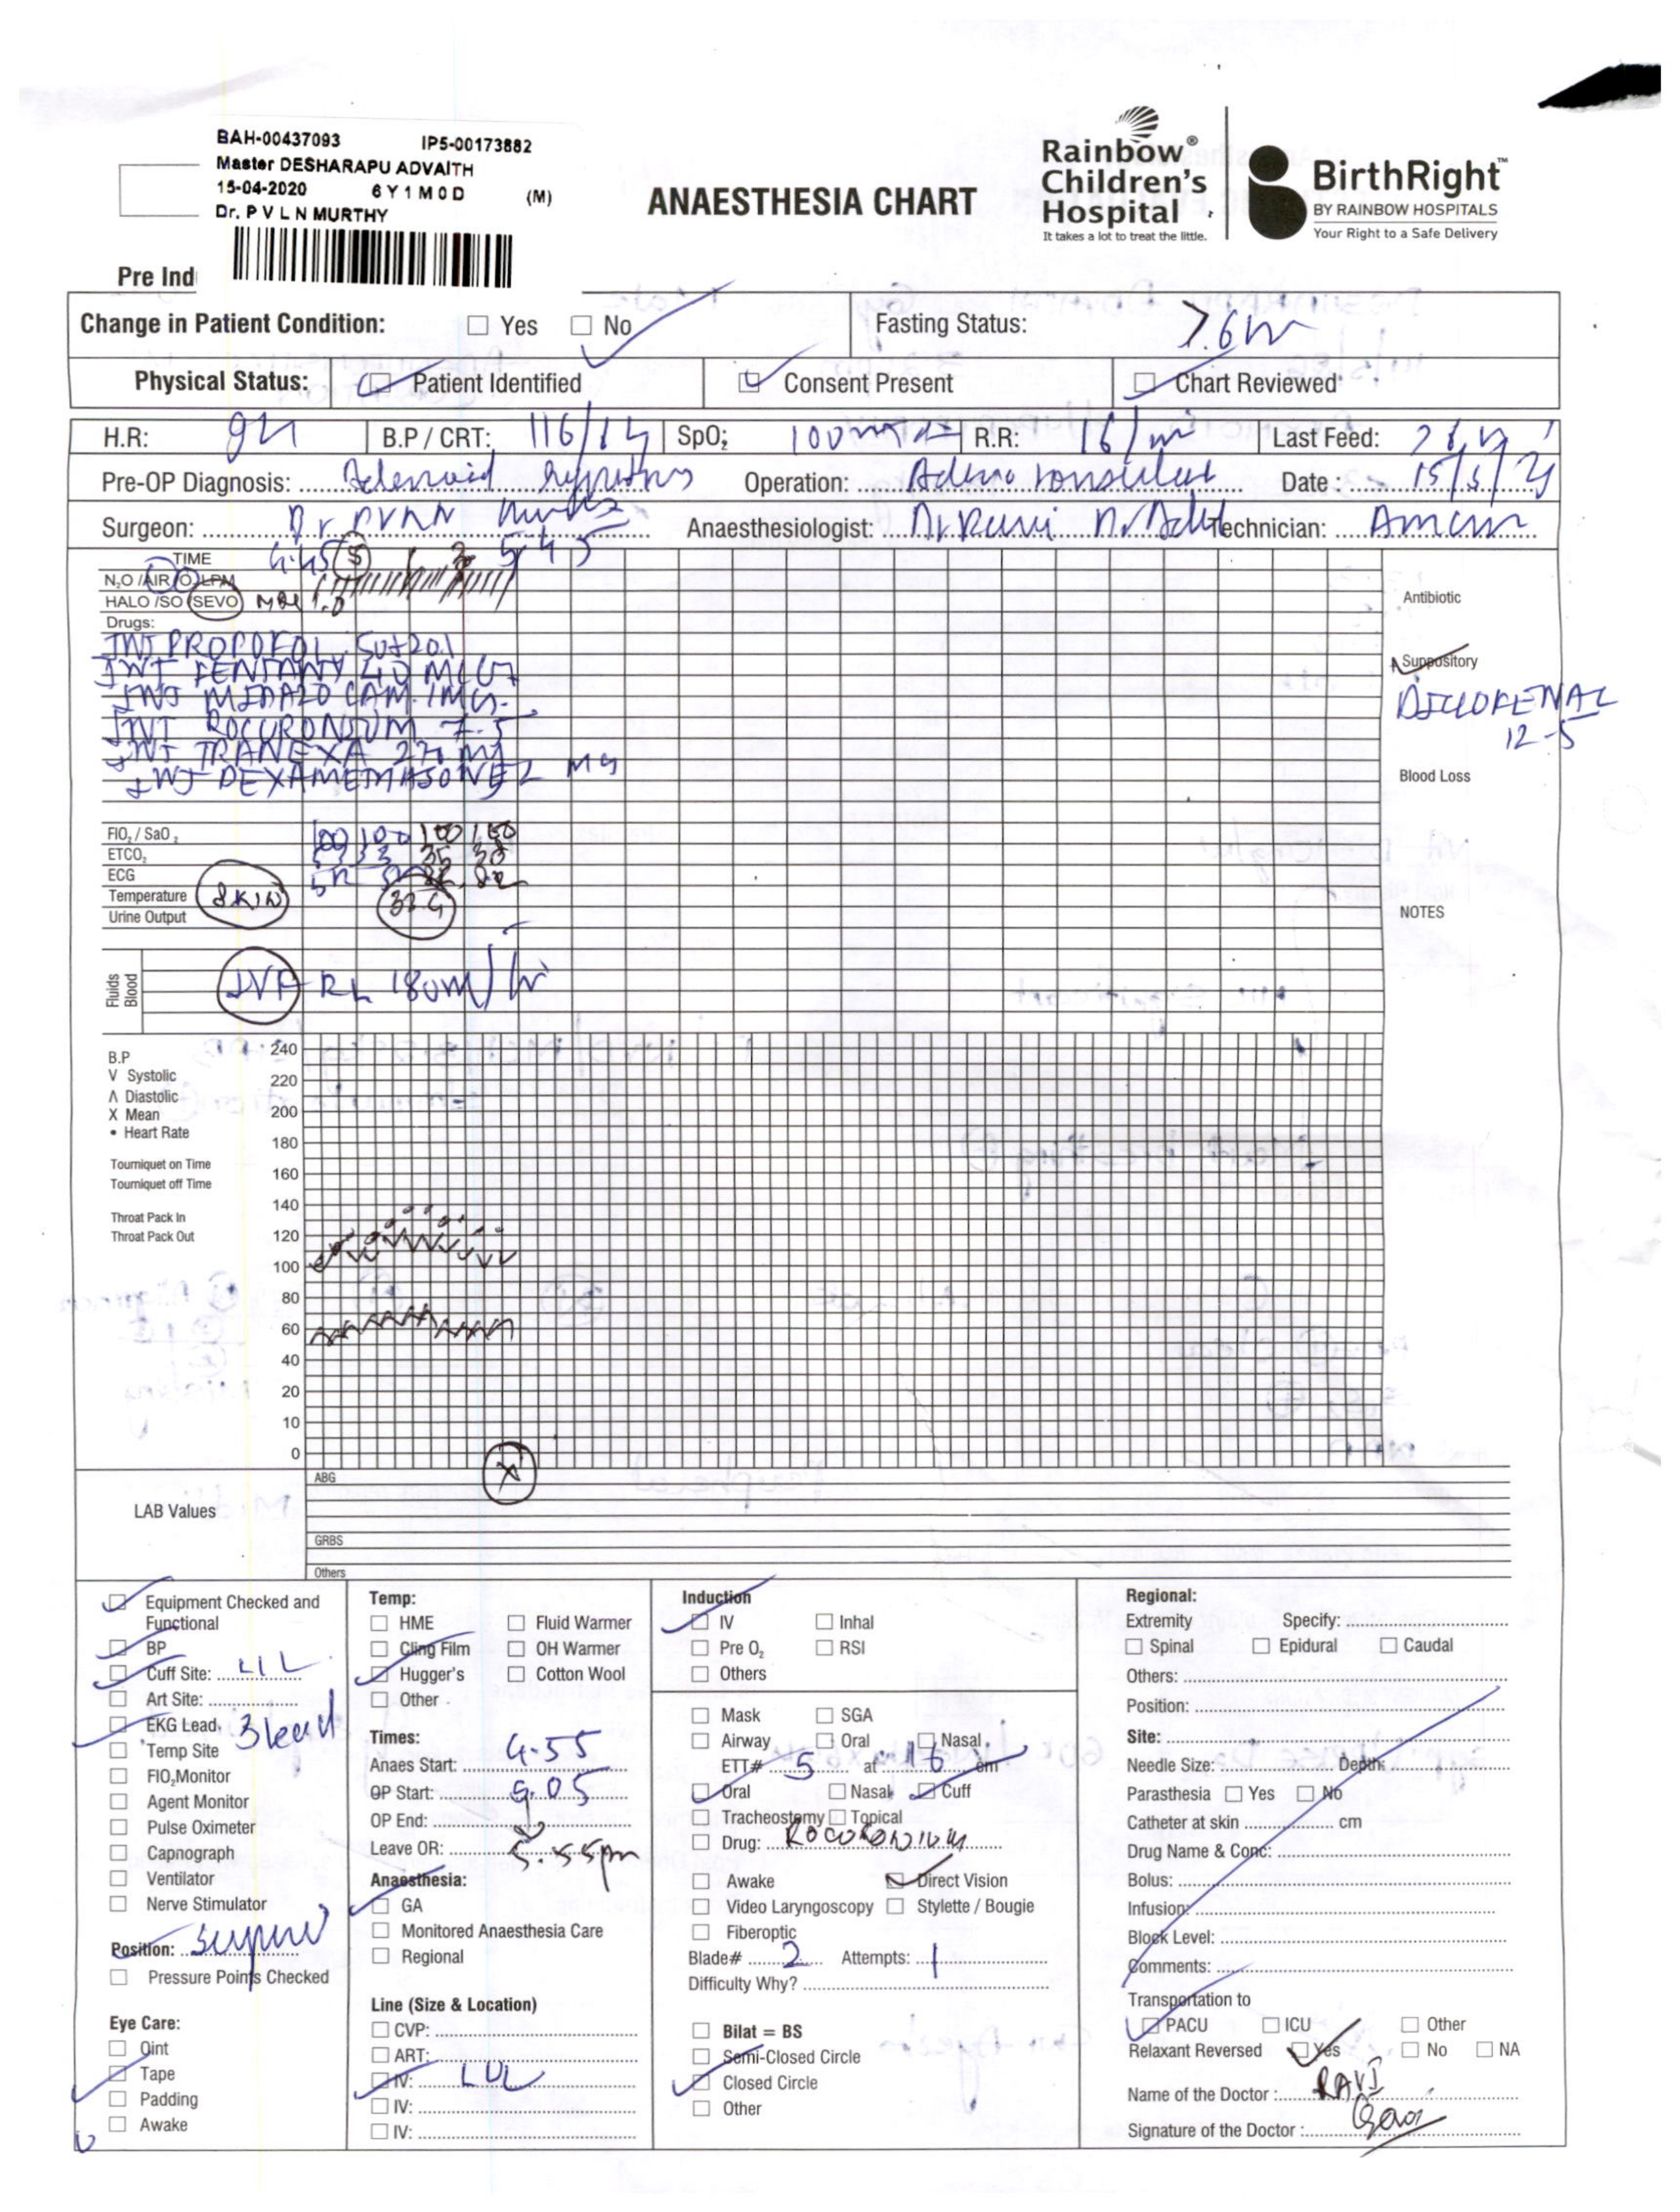 BAH-00437093 IP5-00173882
Master DESHARAPU ADVAITH
15-04-2020 6Y1M0D (M)
Dr. P V L N MURTHY
ANAESTHESIA CHART
Rainbow® Children's Hospital
It takes a lot to treat the little.
BirthRight™
BY RAINBOW HOSPITALS
Your Right to a Safe Delivery
Pre Ind
Change in Patient Condition: Yes No Fasting Status: >6h
Physical Status: Patient Identified Consent Present Chart Reviewed
H.R: B.P / CRT: SpO2: 100 R.R: 16/m Last Feed:
Pre-OP Diagnosis: Adenoid Operation: Adeno Date : 15/5/
Surgeon: Dr PVLN Anaesthesiologist: Dr Ravi Technician:
TIME 4.45 5 5 45
N2O /AIR /O2 LPM
HALO /SO /SEVO MAC 1.0
Antibiotic
Drugs:
INJ PROPOFOL 50+20
INJ FENTANY 40 MCG
Suppository
INJ MIDAZO LAM 1MG
DICLOFENAC
INJ ROCURONIUM 7.5
12-5
INJ TRANEXA 270 MG
INJ DEXAMETHASONE 2 MG
Blood Loss
FIO2 / SaO2 100 100 100 100
ETCO2 33 35 38
ECG SR SR SR SR
Temperature SKIN
Urine Output
NOTES
Fluids Blood IVF RL 180ml/hr
B.P
V Systolic
Λ Diastolic
X Mean
• Heart Rate
Tourniquet on Time
Tourniquet off Time
Throat Pack In
Throat Pack Out
240
220
200
180
160
140
120
100
80
60
40
20
10
0
X
LAB Values
ABG
GRBS
Others
Equipment Checked and Functional
BP
Cuff Site: LLL
Art Site:
EKG Lead 3 lead
Temp Site
FIO2Monitor
Agent Monitor
Pulse Oximeter
Capnograph
Ventilator
Nerve Stimulator
Position: supine
Pressure Points Checked
Eye Care:
Oint
Tape
Padding
Awake
Temp:
HME Fluid Warmer
Cling Film OH Warmer
Hugger's Cotton Wool
Other
Times:
Anaes Start: 4.55
OP Start: 5.05
OP End:
Leave OR: 5.55pm
Anaesthesia:
GA
Monitored Anaesthesia Care
Regional
Line (Size & Location)
CVP:
ART:
IV: LUL
IV:
IV:
Induction
IV Inhal
Pre O2 RSI
Others
Mask SGA
Airway Oral Nasal
ETT# 5 at 16 cm
Oral Nasal Cuff
Tracheostomy Topical
Drug: ROCURONIUM
Awake Direct Vision
Video Laryngoscopy Stylette / Bougie
Fiberoptic
Blade# 2 Attempts: 1
Difficulty Why?
Bilat = BS
Semi-Closed Circle
Closed Circle
Other
Regional:
Extremity Specify:
Spinal Epidural Caudal
Others:
Position:
Site:
Needle Size: Depth:
Parasthesia Yes No
Catheter at skin cm
Drug Name & Conc:
Bolus:
Infusion:
Block Level:
Comments:
Transportation to
PACU ICU Other
Relaxant Reversed Yes No NA
Name of the Doctor : RAVI
Signature of the Doctor :